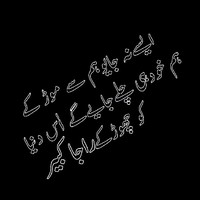 ایسے نہ جایو ہم سے موڑ کے
ہم خود ہی چلے جایے گے اس دنیا
کو چھوڑ کے راجا کبیر